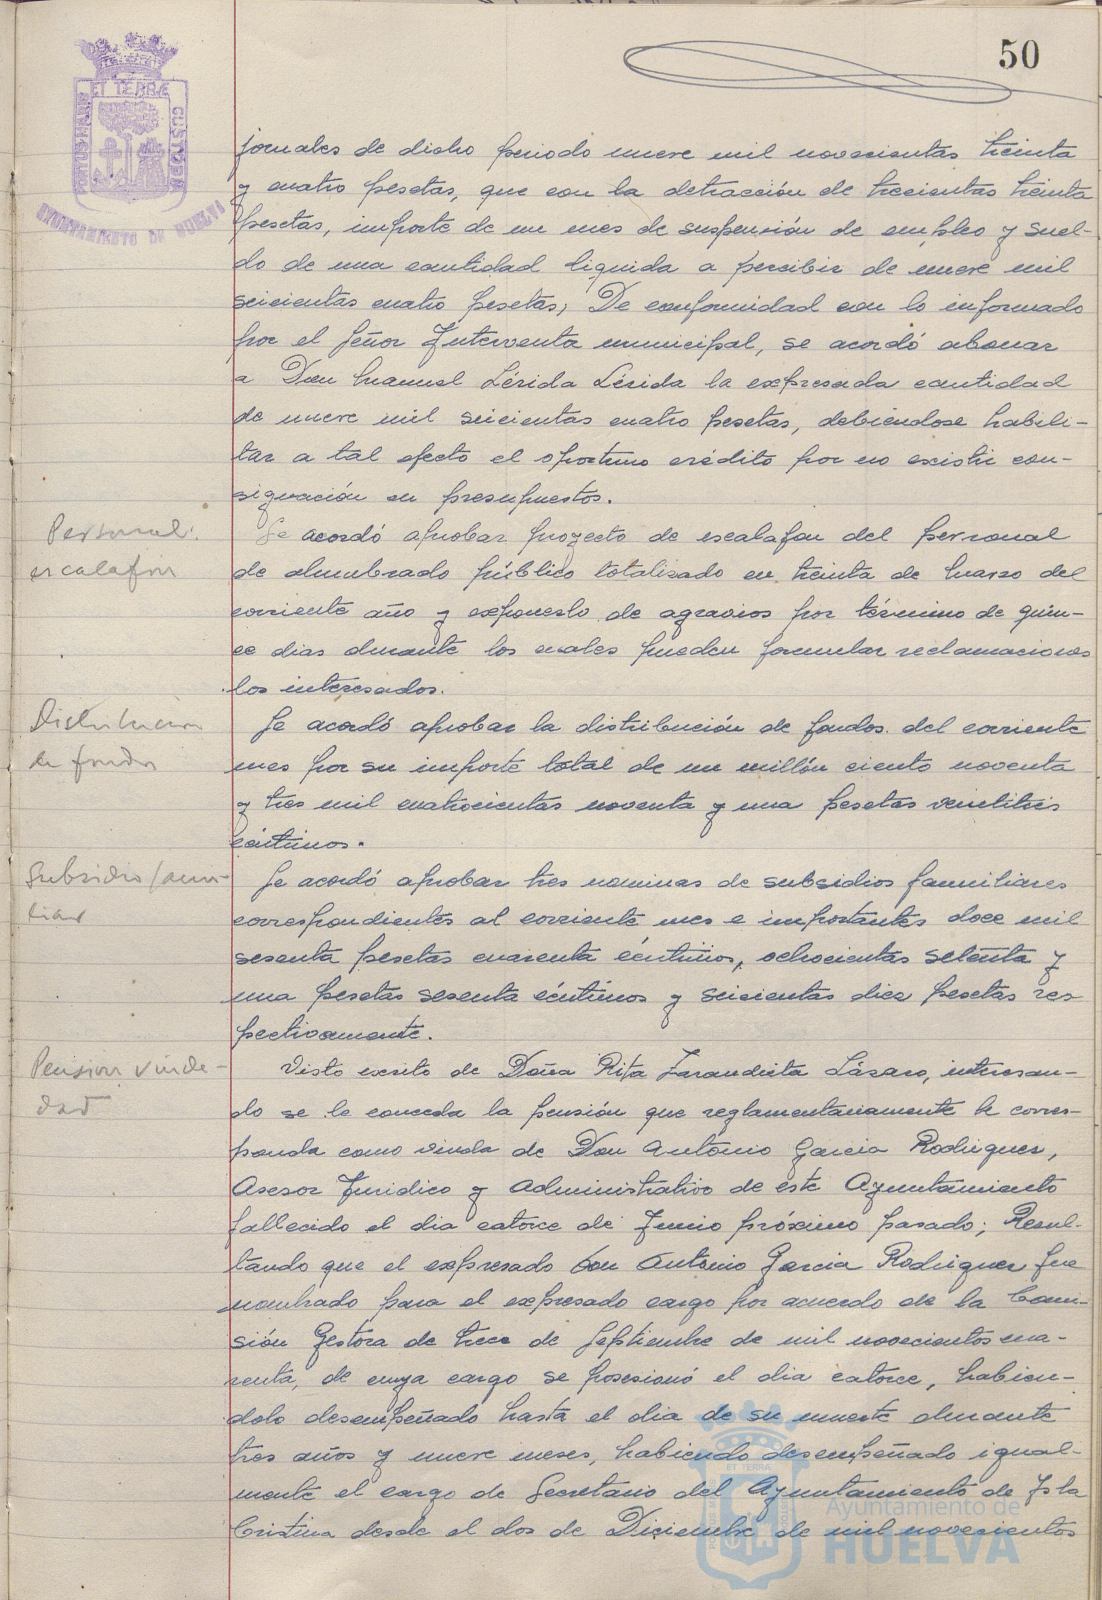 50
ET TERRÆ
CUSTODIA
AYUNTAMIENTO DE HUELVA
jornales de dicho periodo nueve mil novecientas treinta
y cuatro pesetas, que con la detracción de trecientas treinta
pesetas, importe de un mes de suspensión de empleo y suel-
do de una cantidad liquida a percibir de nueve mil
seicientas cuatro pesetas; De conformidad con lo informado
por el Señor Interventor municipal, se acordó abonar
a Don Manuel Lérida Lérida la expresada cantidad
de nueve mil seicientas cuatro pesetas, debiendose habili-
tar a tal efecto el oportuno crédito por no existir con-
signación en presupuestos.
Personal:
escalafón
Se acordó aprobar proyecto de escalafon del personal
de alumbrado público totalizado en treinta de Marzo del
corriente año y exponerlo de agravios por término de quin-
ce dias durante los cuales pueden formular reclamaciones
los interesados.
Distribucion
de fondos
Se acordó aprobar la distribución de fondos del corriente
mes por su importe total de un millón ciento noventa
y tres mil cuatrocientas noventa y una pesetas veintitres
céntimos.
Subsidio fami-
liar
Se acordó aprobar tres nominas de subsidios familiares
correspondientes al corriente mes e importantes doce mil
sesenta pesetas cuarenta céntimos, ochocientas setenta y
una pesetas sesenta céntimos y seicientas diez pesetas res
pectivamente.
Pension viude-
dad
Visto escrito de Doña Rita Zarandieta Lázaro, interesan-
do se le conceda la pensión que reglamentariamente le corres-
ponda como viuda de Don Antonio Garcia Rodriguez,
Asesor Juridico y Administrativo de este Ayuntamiento
fallecido el dia catorce de Junio próximo pasado; Resul-
tando que el expresado Don Antonio Garcia Rodriguez fue
nombrado para el expresado cargo por acuerdo de la Comi-
sión Gestora de trece de Septiembre de mil novecientos cua-
renta, de cuya cargo se posesionó el dia catorce, habien-
dolo desempeñado hasta el dia de su muerte durante
tres años y nueve meses, habiendo desempeñado igual-
mente el cargo de Secretario del Ayuntamiento de Isla
Cristina desde el dos de Diciembre de mil novecientos
Ayuntamiento de
HUELVA